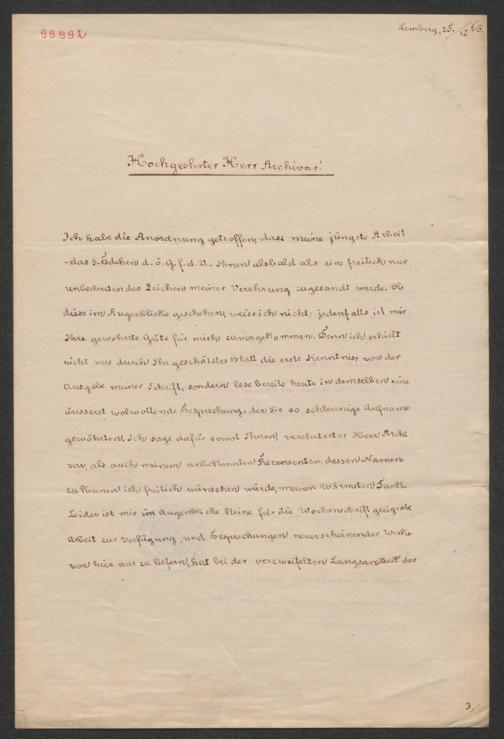 99992
Lemberg, 25/12 65.
Hochgeehrter Herr Archivar!
Ich habe die Anordnung getroffen, dass meine jüngste Arbeit
- das 3. Bdchen d. ö. G. f. d. V. - Ihnen alsbald als ein freilich nur
unbedeutendes Zeichen meiner Verehrung zugesandt werde. Ob
diess im Augenblicke geschehen, weiss ich nicht; jedenfalls ist mir
Ihre gewohnte Güte für mich zuvorgekommen. Denn ich erhielt
nicht nur durch Ihr geschätztes Blatt die erste Kenntniss von der
Ausgabe meiner Schrift, sondern lese bereits heute in demselben eine
äusserst wolwollende Besprechung, der Sie so schleunige Aufname
gewährten. Ich sage dafür sowol Ihnen, verehrtester Herr Archi-
var, als auch meinem unbekannten Recensenten, dessen Namen
zu kennen ich freilich wünschen würde, meinen wärmsten Dank.
Leider ist mir im Augenblicke keine für die Wochenschrift geeignete
Arbeit zur Verfügung, und Besprechungen neuerscheinender Werke
von hier aus zu liefern, hat bei der verzweifelten Langsamkeit der
3